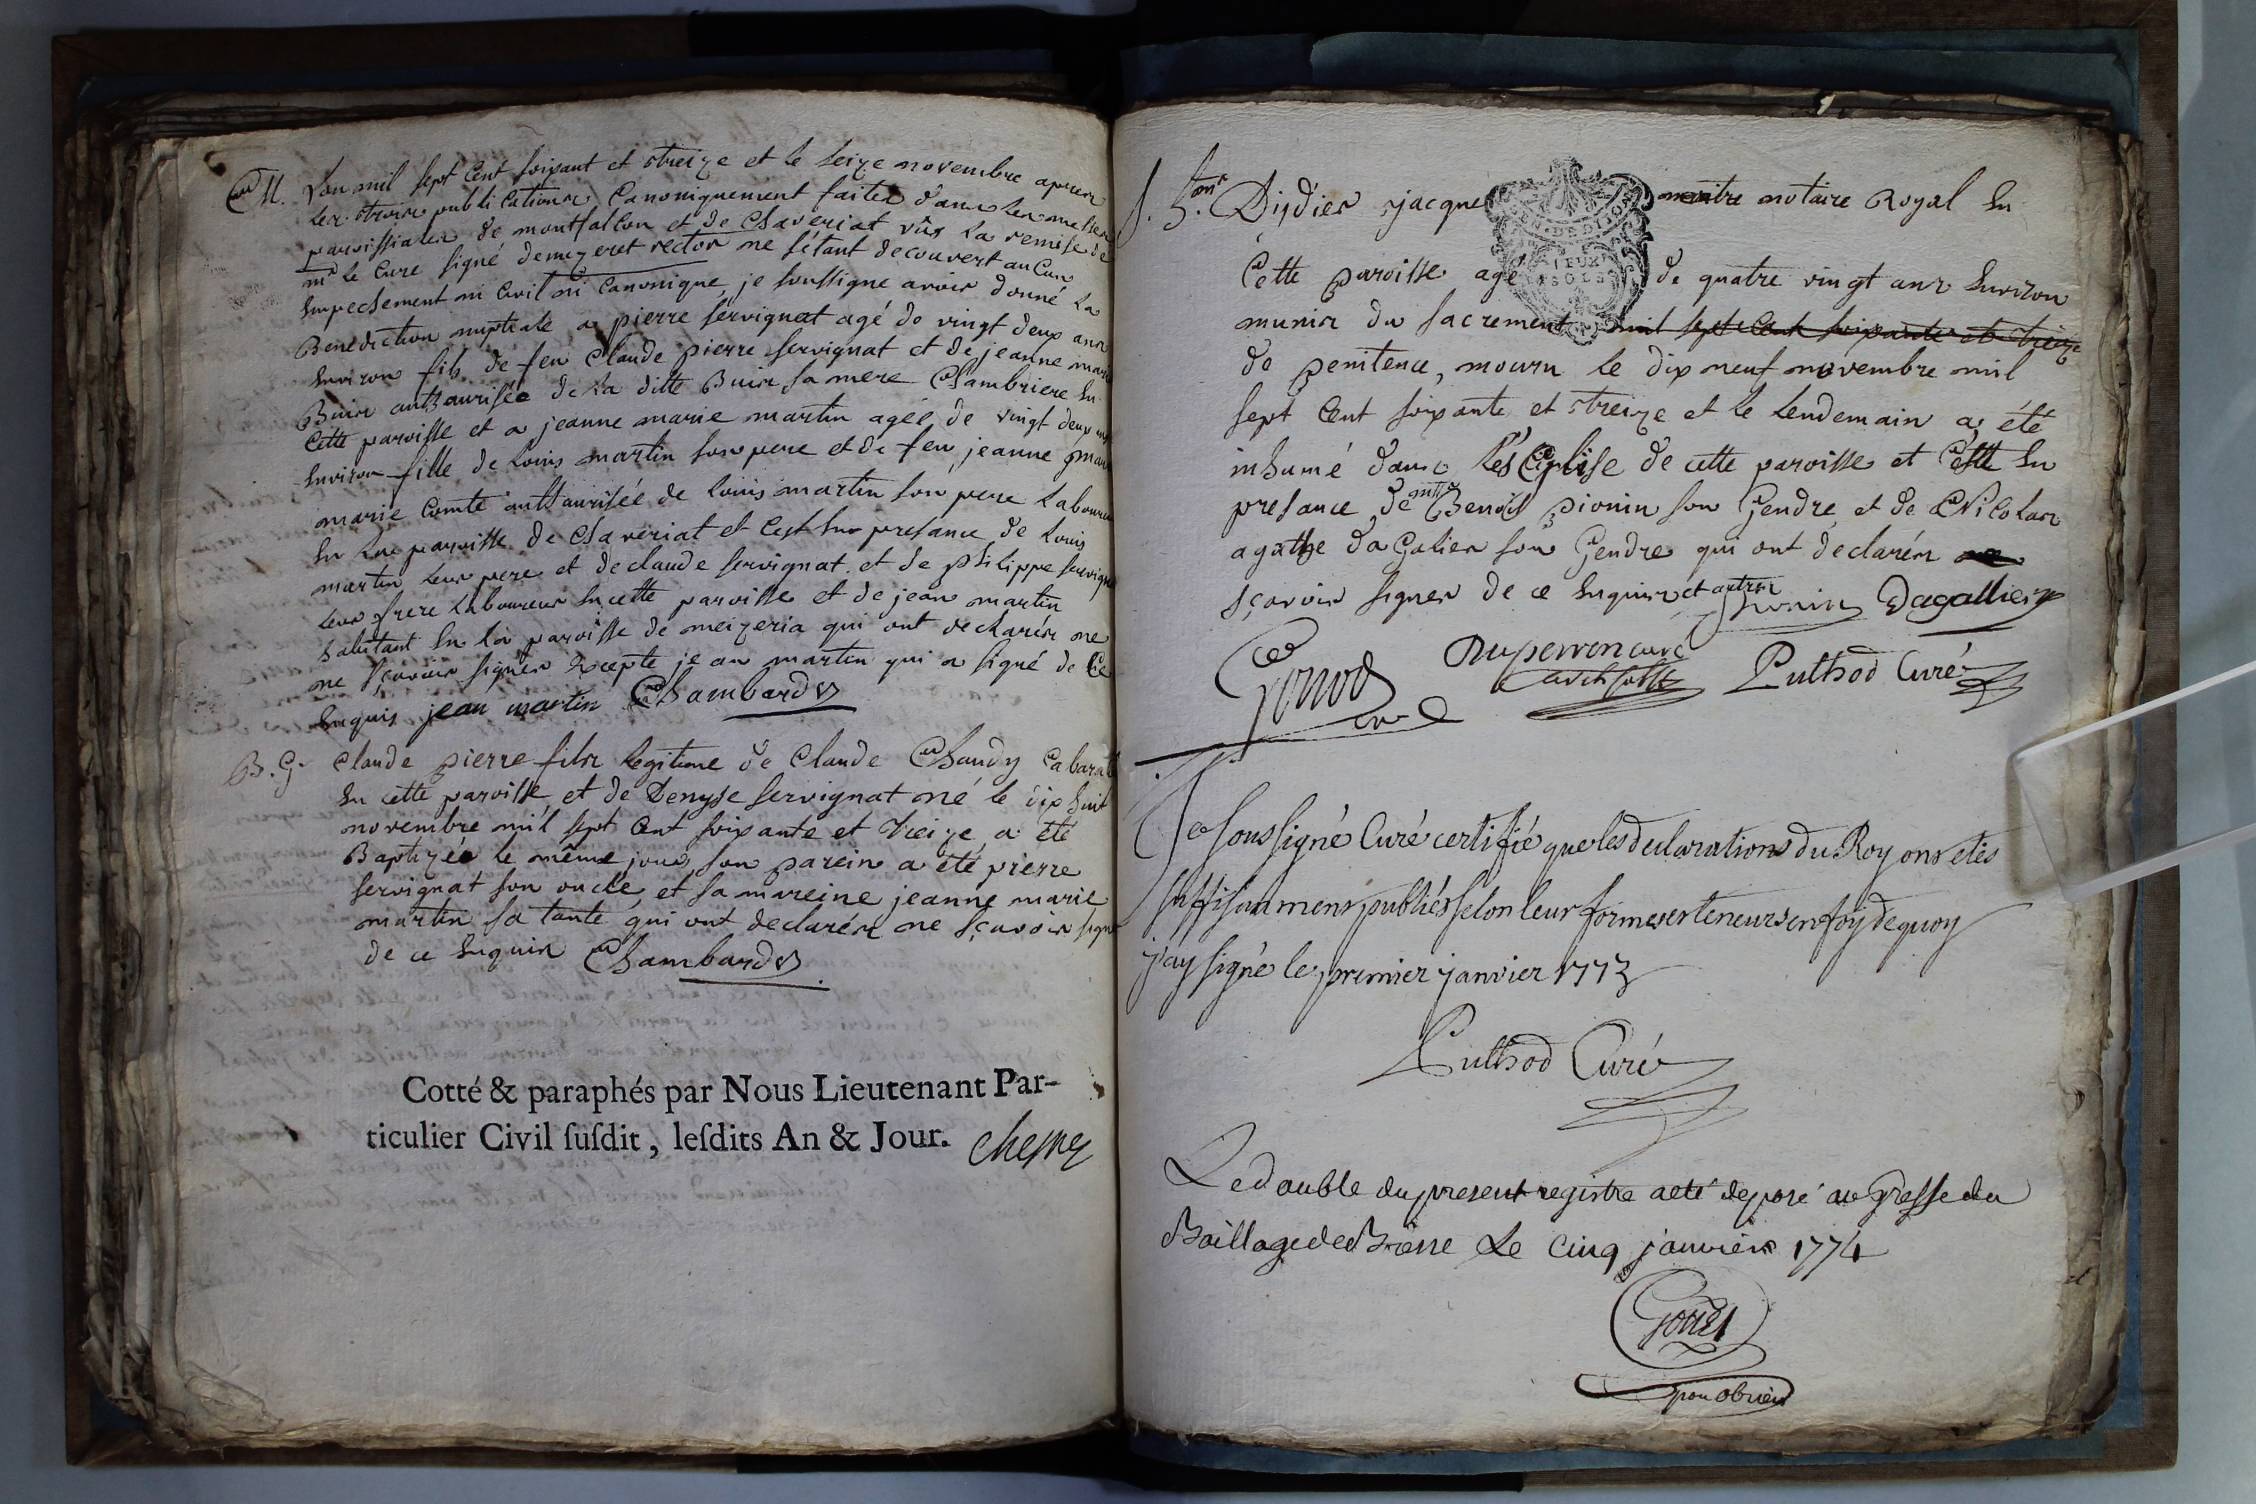 M. L'an mil sept Cent soixant et treize et le seize novembre apres
les trois publications Canoniquement faites dans les messes
paroissiales de montfalcon et de Chaveriat vûs la remise de
mr le Cure signé demezeret rector ne sétant decouvert aucun
Empechement ni Civil ni Canonique, je soussigne avoir donné la
Benediction nuptiale a pierre servignat agé de vingt deux ans
Environ fils de feu Claude pierre servignat et de jeanne marie
Buis authaurisée de la ditte Buis sa mere Chambriere En
Cette paroisse et a jeanne marie martin agée de vingt deux ans
Environ fille de Louis martin son pere et de feu jeanne marie
marie Comte authaurisée de louis martin son pere laboureur
En la paroisse de Chaveriat et C'est En presance de louis
martin leur pere et de claude servignat et de philippe servignat
leur frere laboureur En cette paroisse et de jean martin
habitant En la paroisse de meizeria qui ont declarés ne
ne sçavoir signer Excepte jean martin qui a signé de Ce
Enquis jean martin Chambard
B. G. Claude pierre fils legitime de Claude Chaudy Cabarat
En cette paroisse et de Denyse servignat né le dix huit
novembre mil sept Cent soixante et treize a été
Baptizée le même jour son parein a été pierre
servignat son oncle, et sa mareine jeanne marie
martin sa tante qui ont declarés ne sçavoir sign
de ce Enquis Chambard
Cotté & paraphés par Nous Lieutenant Par-
ticulier Civil ſuſdit, leſdits An & Jour.
S. h. Didier jacque maitre notaire Royal En
GEN. DE DIJON
Cette paroisse agé de quatre vingt ans Environ
munis du sacrement mil sept Cent soixante et treize
de penitence, mouru le dix neuf novembre mil
sept Cent soixante et treize et le lendemain a été
inhumé dans L'Eglise de cette paroisse et C'est En
presance de mtre Benoit pionin son Gendre et de Nicolas
agathe daGalier son Gendre qui ont declarés
sçavoir signer de ce Enquis et autres pionin Dagallier
Gonod curé Duperron curé archiprêtre Puthod Curé
Je sous signé Curé certifié que les declarations du Roy ont etés
suffisamment publiés selon leur formes et teneurs en foy de quoy
j'ay signé le premier janvier 1773
Puthod Curé
Le double du present registre a eté deposé au Greffe du
Baillage de Bresse Le Cinq janvier 1774